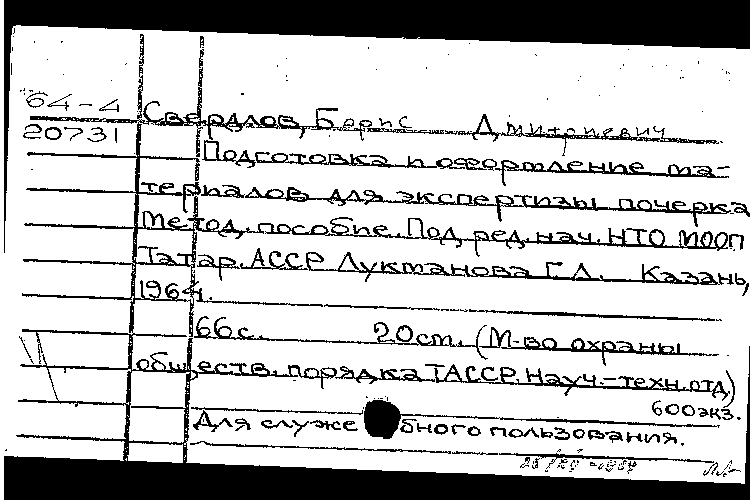 64-4 Свердлов, Борис Дмитриевич
20731
Подготовка и оформление ма-
териалов для экспертизы почерка
Метод. пособие. Под ред. нач. НТО МООП
Татар. АССР Лукманова Г.Л. Казань,
1964.
66с. 20см. (М-во охраны
обществ. порядка ТАССР. Науч.-техн. отд)
600экз.
Для служебного пользования.